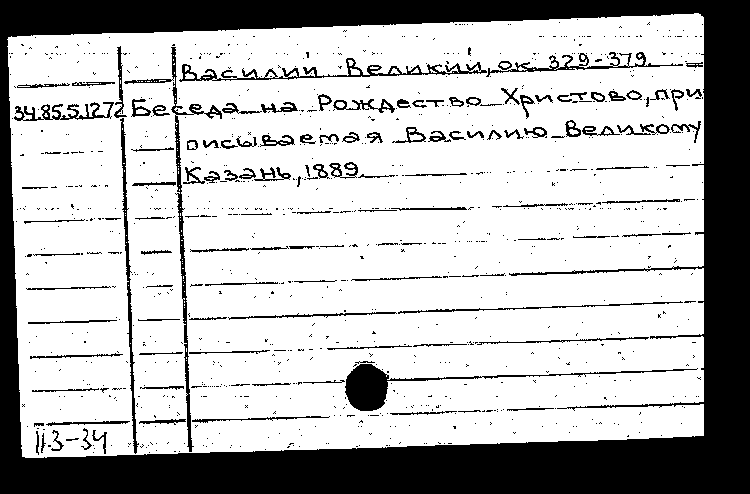 Василий Великий, ок 329-379.
34.85.5.1272 Беседа на Рождество Христово, при
писываемая Василию Великому
Казань, 1889.
113-34